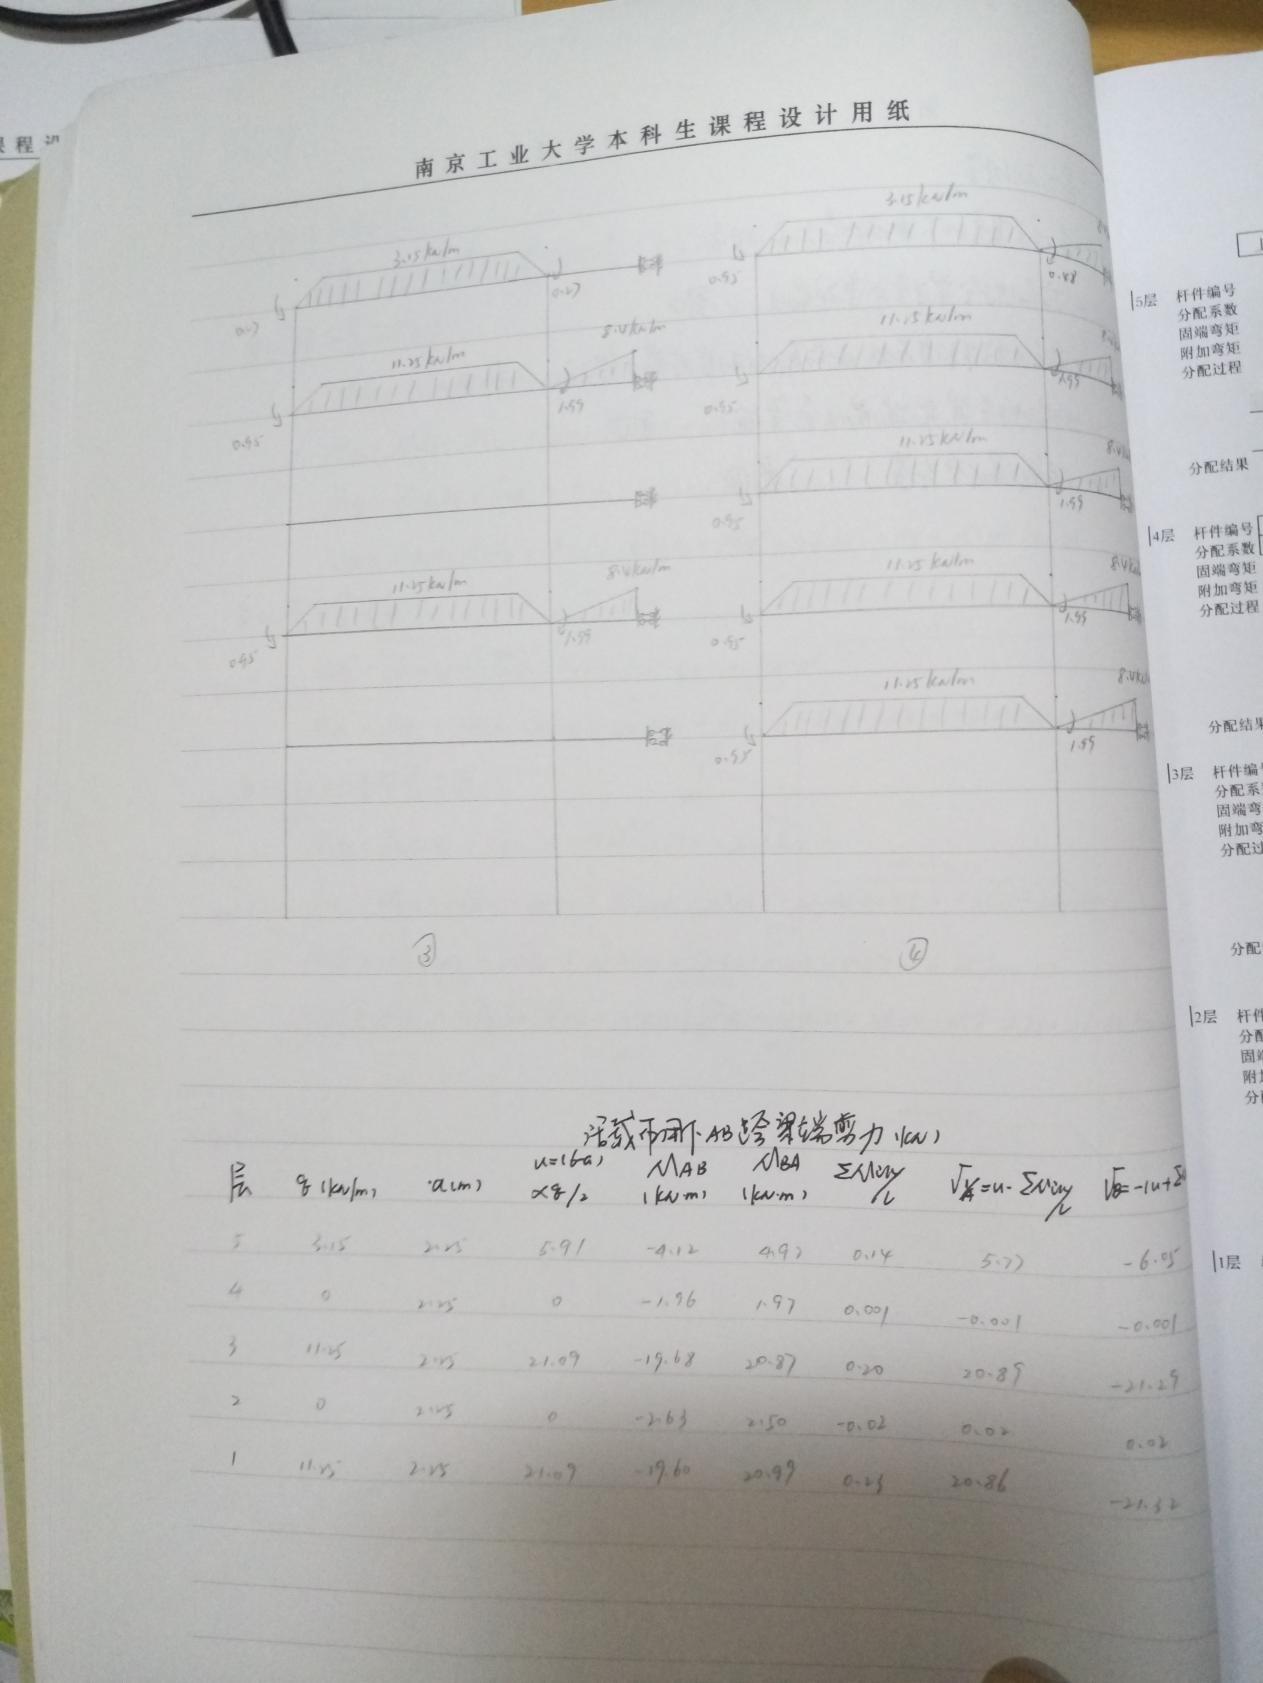 课程设
南京工业大学本科生课程设计用纸
3.15kN/m
3.15kN/m
0.27
0.95
0.48
11.25kN/m
8.4kN/m
11.25kN/m
0.95
1.99
0.95
1.99
11.25kN/m
0.95
1.99
11.25kN/m
8.4kN/m
11.25kN/m
0.95
1.99
0.95
1.99
11.25kN/m
0.95
1.99
③ ④
活载布 AB跨梁端剪力(kN)
层 q(kN/m) a(m) u=(6-a)×q/2 MAB(kN·m) MBA(kN·m)
5 3.15 2.25 5.91 -4.12 4.97 0.14 5.77 -6.05
4 0 2.25 0 -1.96 1.97 0.001 -0.001 -0.001
3 11.25 2.25 21.09 -19.68 20.87 0.20 20.89 -21.29
2 0 2.25 0 -2.63 2.50 -0.02 0.02 0.02
1 11.25 2.25 21.09 -19.60 20.99 0.23 20.86 -21.32
5层 杆件编号
分配系数
固端弯矩
附加弯矩
分配过程
分配结果
4层 杆件编号
分配系数
固端弯矩
附加弯矩
分配过程
分配结果
3层 杆件编
分配系
固端弯
附加弯
分配过
分配
2层 杆件
分配
固端
附加
分
1层